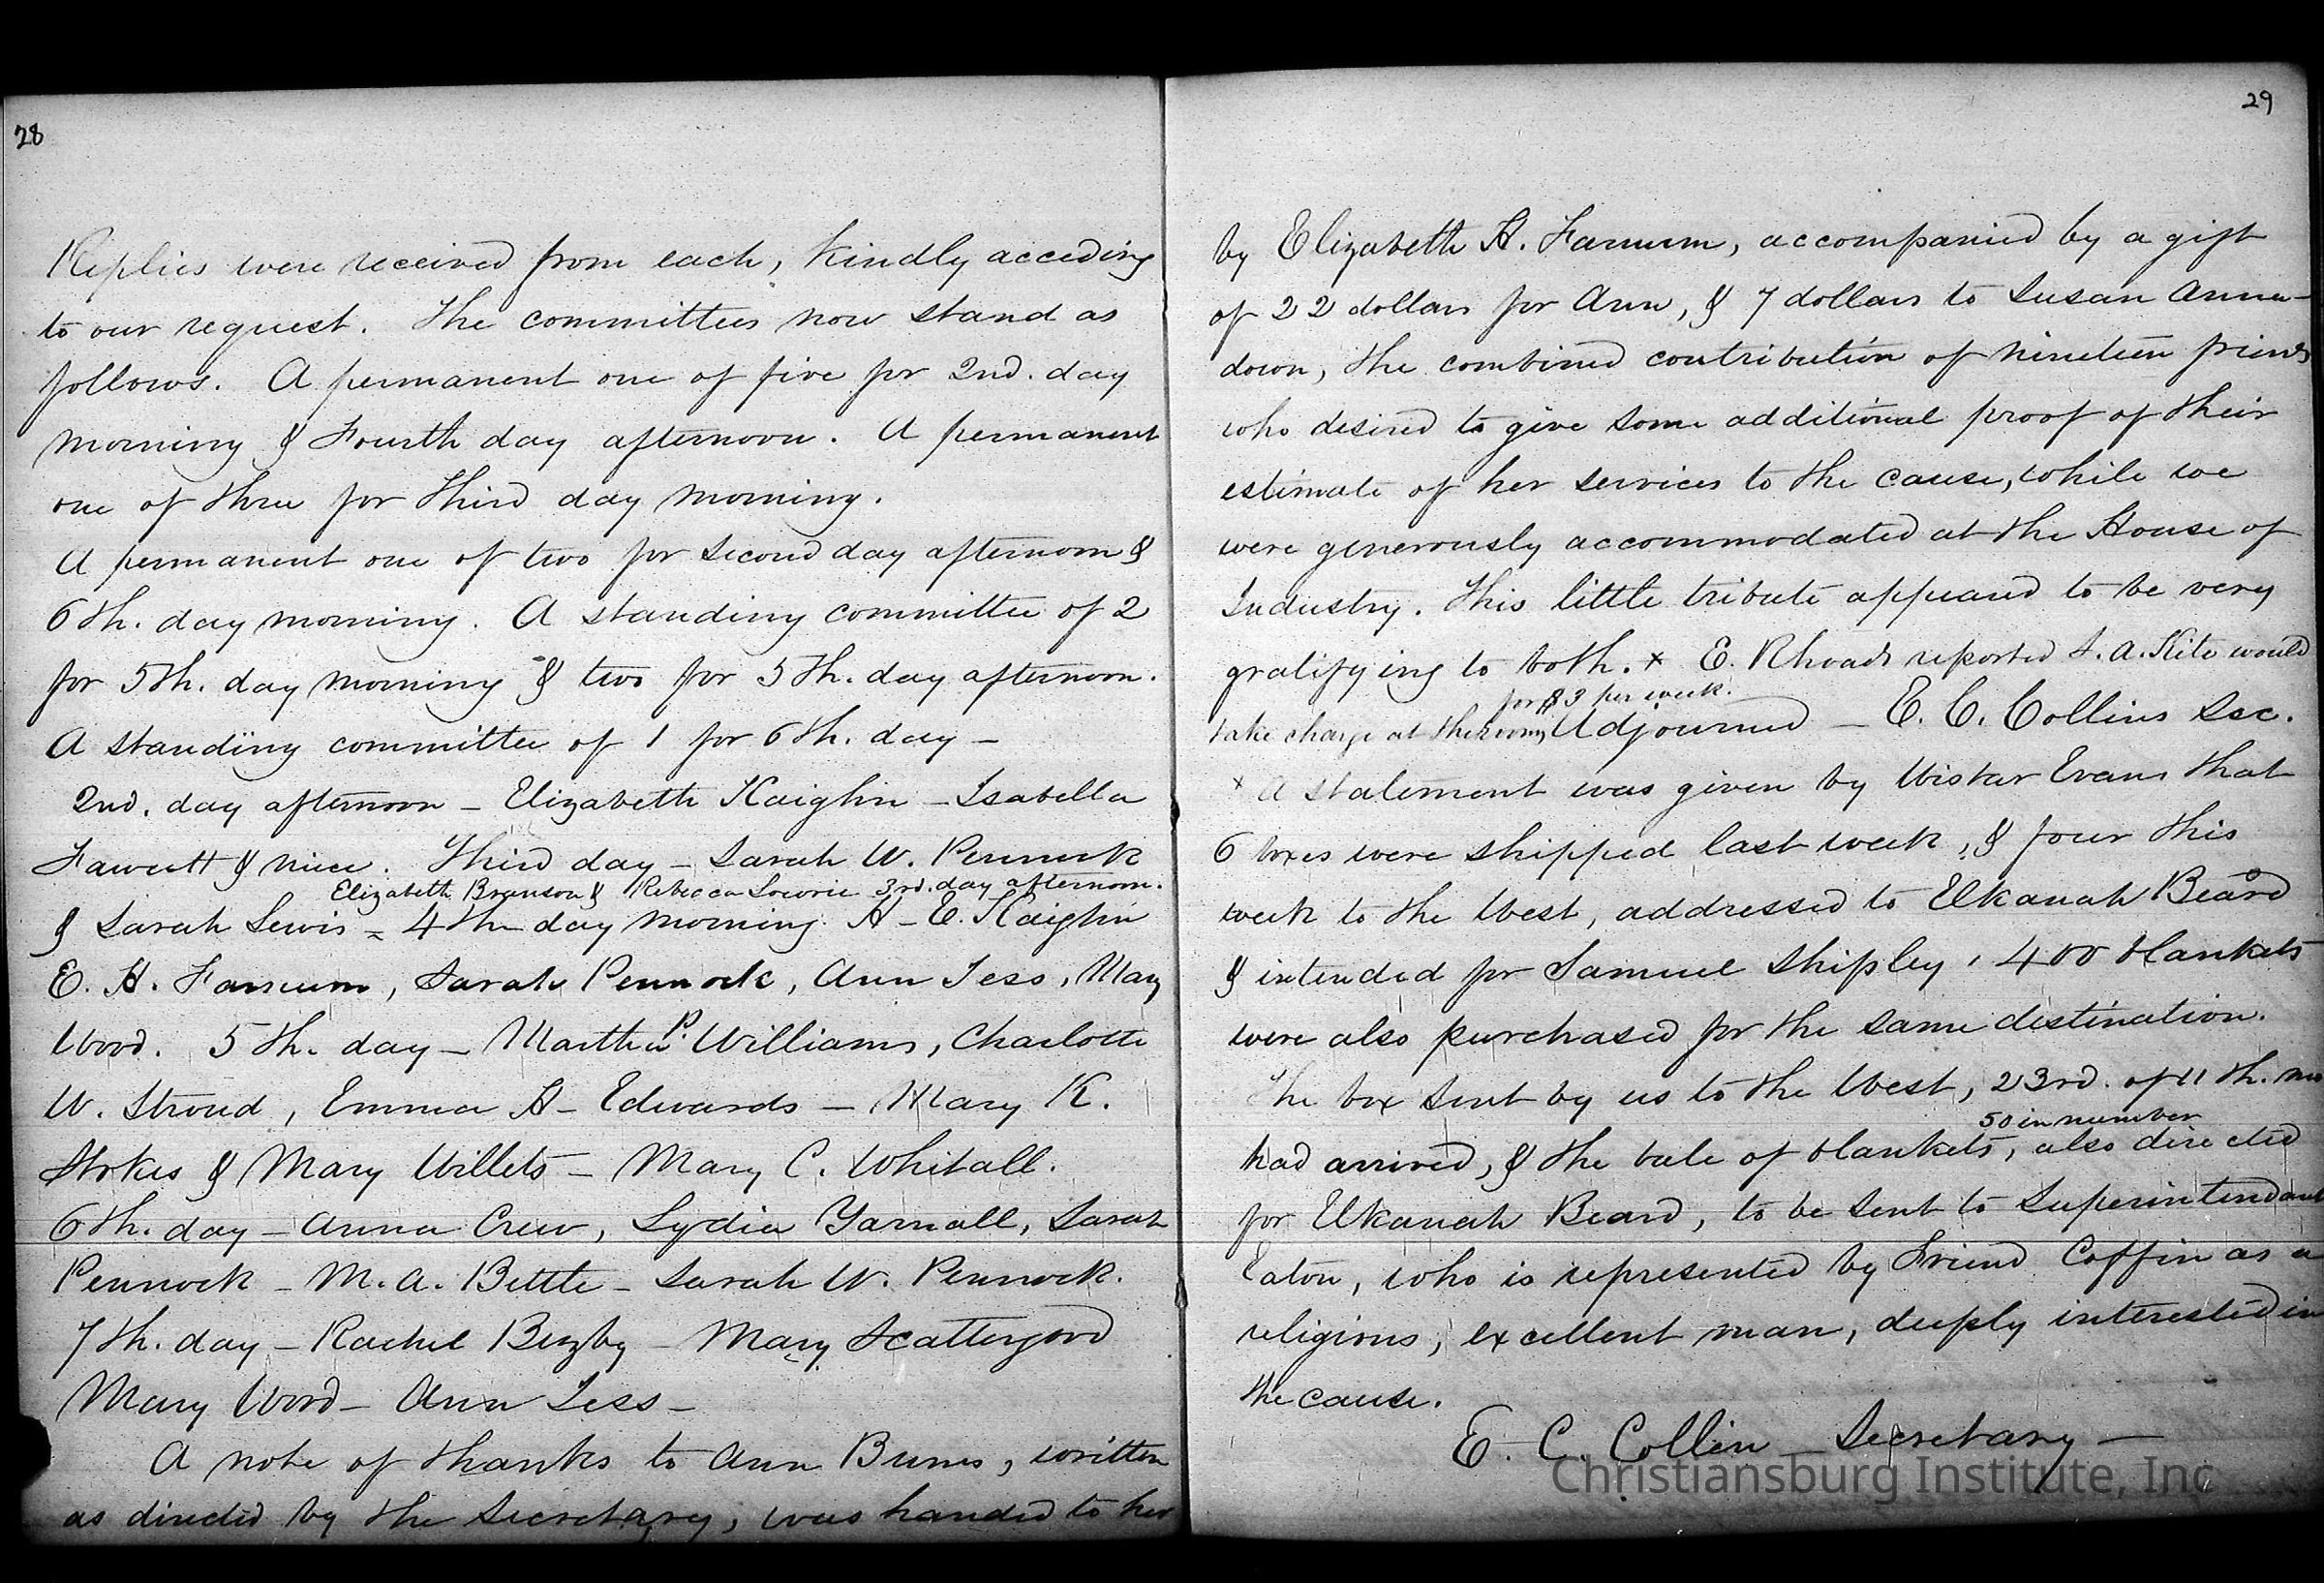 28
Replies were received from each, kindly acceding
to our request. The committees now stand as
follows. A permanent one of five for 2nd. day
morning & Fourth day afternoon. A permanent
one of three for third day morning.
A permanent one of two for second day afternoon &
6th. day morning. A standing committee of 2
for 5th. day morning & two for 5th. day afternoon.
A standing committee of 1 for 6th. day –
2nd. day afternoon – Elizabeth Kaighn – Isabella
Fawcett & niece. Third day – Sarah W. Pennock
Elizabeth Branson & Rebecca Lowrie 3rd. day afternoon.
& Sarah Lewis – 4th day morning A – E. Kaighn
E. H. Farnum, Sarah Pennock, Ann Jess, Mary
Wood. 5th. day – Martha P. Williams, Charlotte
W. Stroud, Emma A – Edwards – Mary K.
Stokes & Mary Willets – Mary C. Whitall.
6th. day – Anna Crew, Lydia Yarnall, Sarah
Pennock – M. A. Bettle – Sarah W. Pennock.
7th. day – Rachel Buzby – Mary Scattergood
Mary Wood – Ann Jess –
A note of thanks to Ann Burns, written
as directed by the Secretary, was handed to her
29
by Elizabeth H. Farnum, accompanied by a gift
of 22 dollars for Ann, & 7 dollars to Susan Anna-
down, the combined contribution of nineteen friends
who desired to give some additional proof of their
estimate of her services to the cause, while we
were generously accommodated at the House of
Industry. This little tribute appeared to be very
gratifying to both. x E. Rhoads reported S. A. Kite would
for $3 per week.
take charge at the room, Adjourned – E. C. Collins Sec.
x A statement was given by Wistar Evans that
6 boxes were shipped last week, & four this
week to the West, addressed to Elkanah Beard
& intended for Samuel Shipley, 400 blankets
were also purchased for the same destination.
The box sent by us to the West, 23rd. of 11th. mo
50 in number
had arrived, & the bale of blankets, also directed
for Elkanah Beard, to be sent to Superintendant
Eaton, who is represented by Friend Coffin as a
religious, excellent man, deeply interested in
the cause.
E. C. Collin – Secretary –
Christiansburg Institute, Inc